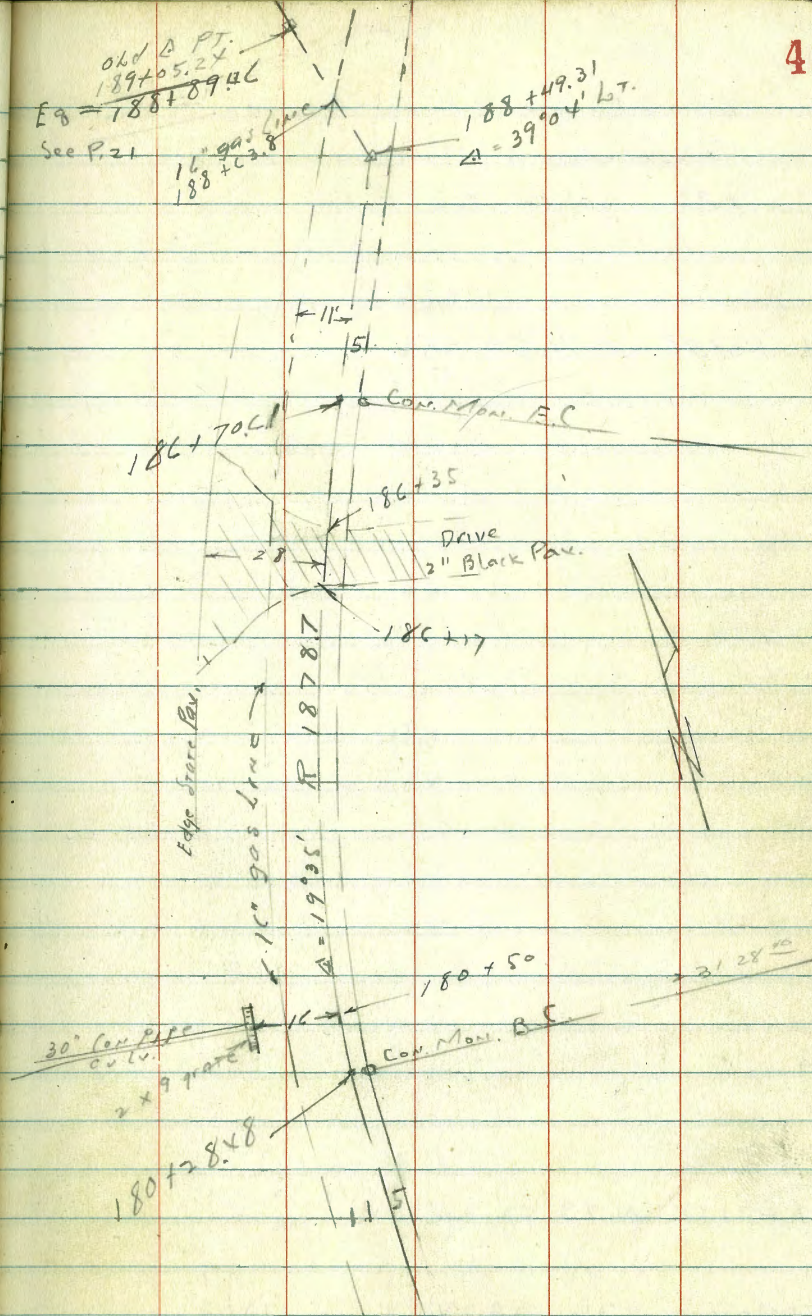 4
Old Δ PT.
189+05.24
Eq = 188+89.46
See P. 21
16" gas Line
188+63.8
188+49.31
Δ = 39°04' LT.
11'
5'
Con. Mon. E.C
186+70.61
186+35
28
Drive
2" Black Pav.
186+17
Edge State Pav.
16" gas Line
Δ = 19°35' R 1878.7
180+50
16
30" Con Pipe
Culv.
2 x 9 grate
Con. Mon. B.C.
180+28.48
11
5